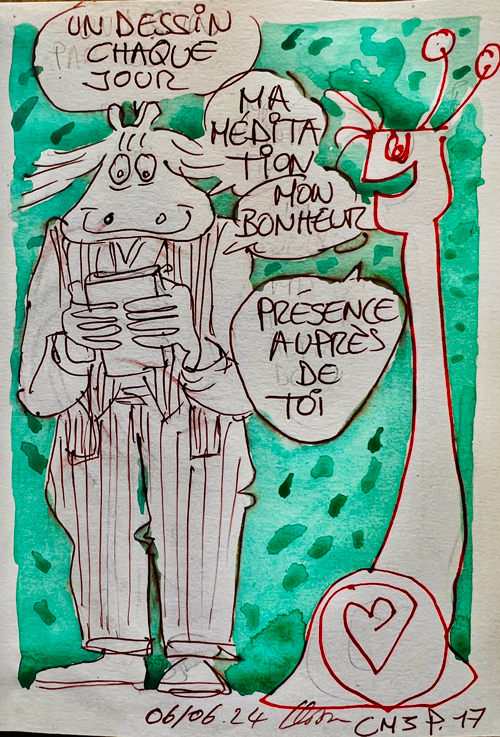 UN DESSIN
CHAQUE
JOUR
MA
MÉDITA
TION
MON
BONHEUR
PRÉSENCE
AUPRÈS
DE
TOI
06/06.24
CM3 P.17